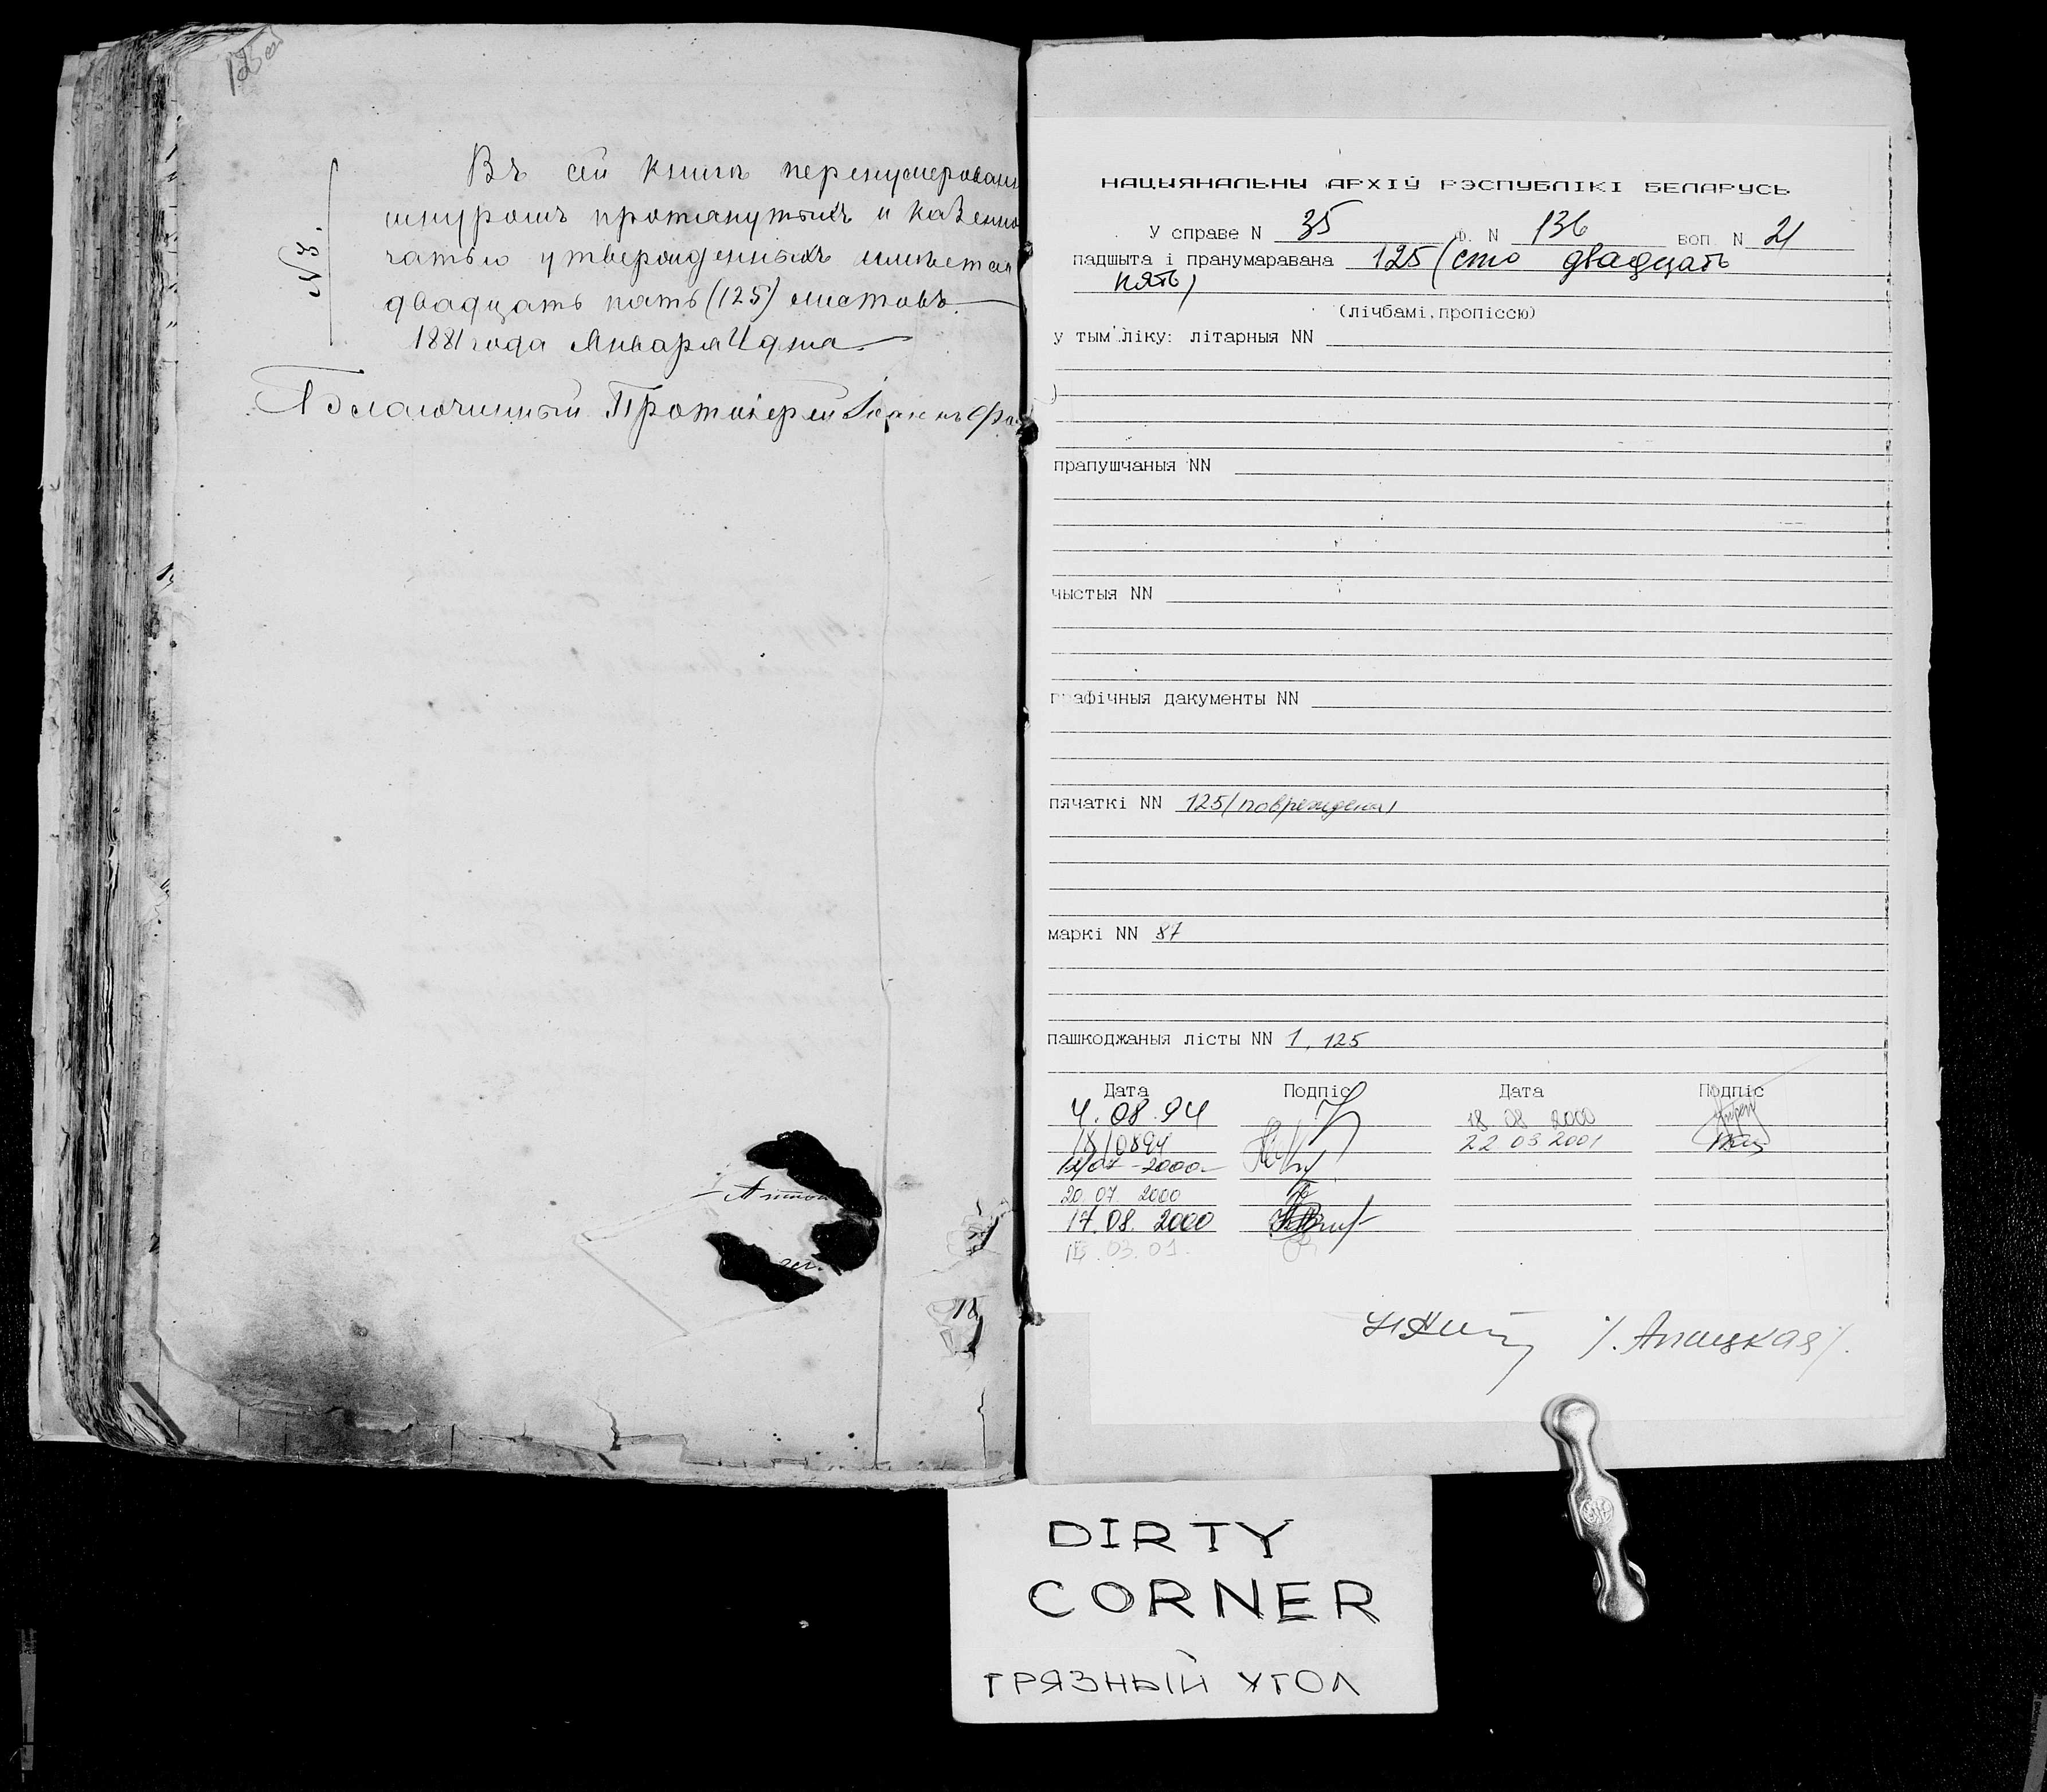 125об
№3.
Въ сей книгѣ перенумерован
шнуромъ протянутыхъ и казенно
чатью утвержденныхъ имѣется
двадцать пять (125) листовъ.
1881 года Января 4 дня
Благочинный Протоіерей Іоаннъ
НАЦЫЯНАЛЬНЫ АРХІЎ РЭСПУБЛІКІ БЕЛАРУСЬ
У справе N 35 Ф. N 136 воп. N 21
падшыта і пранумаравана 125 (сто двадцать
пять)
(лічбамі, пропіссю)
у тым ліку: літарныя NN
прапушчаныя NN
чыстыя NN
графічныя дакументы NN
пячаткі NN 125 (повреждена)
маркі NN 87
пашкоджаныя лісты NN 1, 125
Дата Подпіс Дата Подпіс
4.08.94 18 08 2000
18/0894 22 03 2001
12/07-2000
20.07. 2000
17.08. 2000
03.01.
DIRTY
CORNER
ГРЯЗНЫЙ УГОЛ